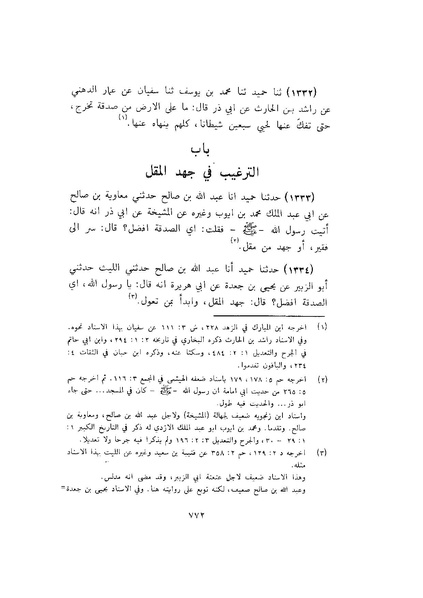 (١٣٣٢) ثنا حميد ثنا محمد بن يوسف ثنا سفيان عن عمار الدهني
عن راشد بن الحارث عن ابي ذر قال: ما على الارض من صدقة تخرج،
حتى تفكّ عنها لحيي سبعين شيطانا، كلهم ينهاه عنها.(١)
باب
الترغيب في جهد المقل
(١٣٣٣) حدثنا حميد انا عبد الله بن صالح حدثني معاوية بن صالح
عن ابي عبد الملك محمد بن ايوب وغيره عن المشيخة عن ابي ذر انه قال:
أتيت رسول الله -ﷺ- فقلت: اي الصدقة افضل؟ قال: سر الى
فقير، أو جهد من مقل.(٢)
(١٣٣٤) حدثنا حميد أنا عبد الله بن صالح حدثني الليث حدثني
أبو الزبير عن يحيى بن جعدة عن ابي هريرة انه قال: يا رسول الله، اي
الصدقة افضل؟ قال: جهد المقل، وابدأ بمن تعول.(٣)
(١) اخرجه ابن المبارك في الزهد ٢٢٨، ش ٣: ١١١ عن سفيان بهذا الاسناد نحوه.
وفي الاسناد راشد بن الحارث ذكره البخاري في تاريخه ٢: ١: ٢٩٤، وابن ابي حاتم
في الجرح والتعديل ١: ٢: ٤٨٤، وسكتا عنه، وذكره ابن حبان في الثقات ٤:
٢٣٤، والباقون تقدموا.
(٢) اخرجه حم ٥: ١٧٨، ١٧٩ باسناد ضعفه الهيثمي في المجمع ٣: ١١٦. ثم اخرجه حم
٥: ٢٦٥ من حديث ابي امامة ان رسول الله -ﷺ- كان في المسجد... حتى جاء
ابو ذر... والحديث فيه طول.
واسناد ابن زنجويه ضعيف لجهالة (المشيخة) ولاجل عبد الله بن صالح، ومعاوية بن
صالح. وتقدما. ومحمد بن ايوب ابو عبد الملك الازدي له ذكر في التاريخ الكبير ١:
١: ٢٩ - ٣٠، والجرح والتعديل ٣: ٢: ١٩٦ ولم يذكرا فيه جرحا ولا تعديلا.
(٣) اخرجه د ٢: ١٢٩، حم ٢: ٣٥٨ عن قتيبة بن سعيد وغيره عن الليث بهذا الاسناد
مثله.
وهذا الاسناد ضعيف لاجل عنعنة ابي الزبير، وقد مضى انه مدلس.
وعبد الله بن صالح ضعيف، لكنه توبع على روايته هنا. وفي الاسناد يحيى بن جعدة=
٧٧٢